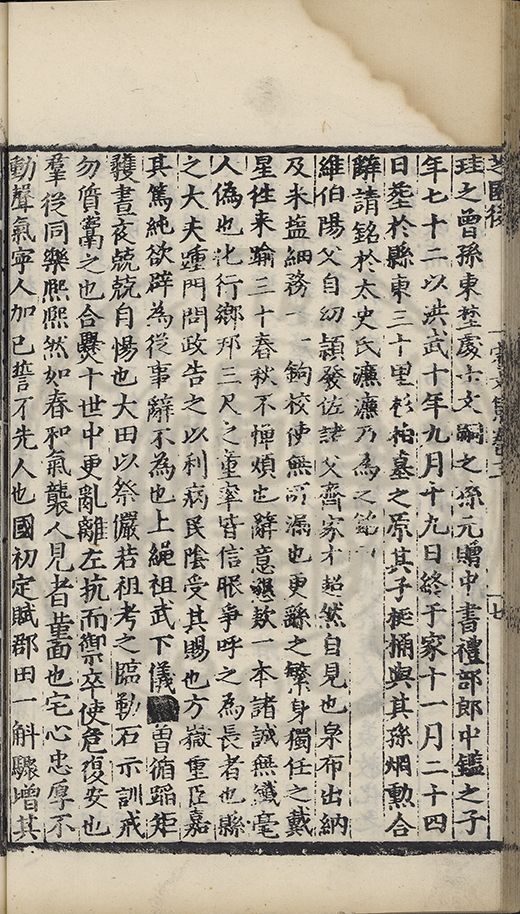 芝園後
珪之曾孫東埜處士文嗣之孫元贈中書禮部郎中鑑之子
年七十二以洪武十年九月十九日終于家十一月二十四
日塟於縣東三十里杉柏墓之原其子梃桶與其孫烱勲合
辭請銘於太史氏濂濂乃為之銘
維伯陽父自幼頴發佐諸父齊家才超然自見也泉布出納
及米鹽細務一一鉤校使無所漏也更繇之繁身獨任之戴
星徃来踰三十春秋不憚煩也辭意懇欵一本諸誠無纎毫
人偽也化行鄉邦三尺之童率皆信眼爭呼之為長者也縣
之大夫踵門問政告之以利病民陰受其賜也方嶽重臣嘉
其篤純欲辟為從事辭不為也上繩祖武下儀曽循蹈矩
䕶晝夜兢兢自惕也大田以祭儼若祖考之臨勒石示訓戒
勿質鬻之也合㸑十世中更亂離左抗而禦卒使危復安也
羣從同樂熈熈然如春和氣襲人見者薑面也宅心忠厚不
動聲氣寧人加已誓不先人也國初定賦郡田一斛驟增其